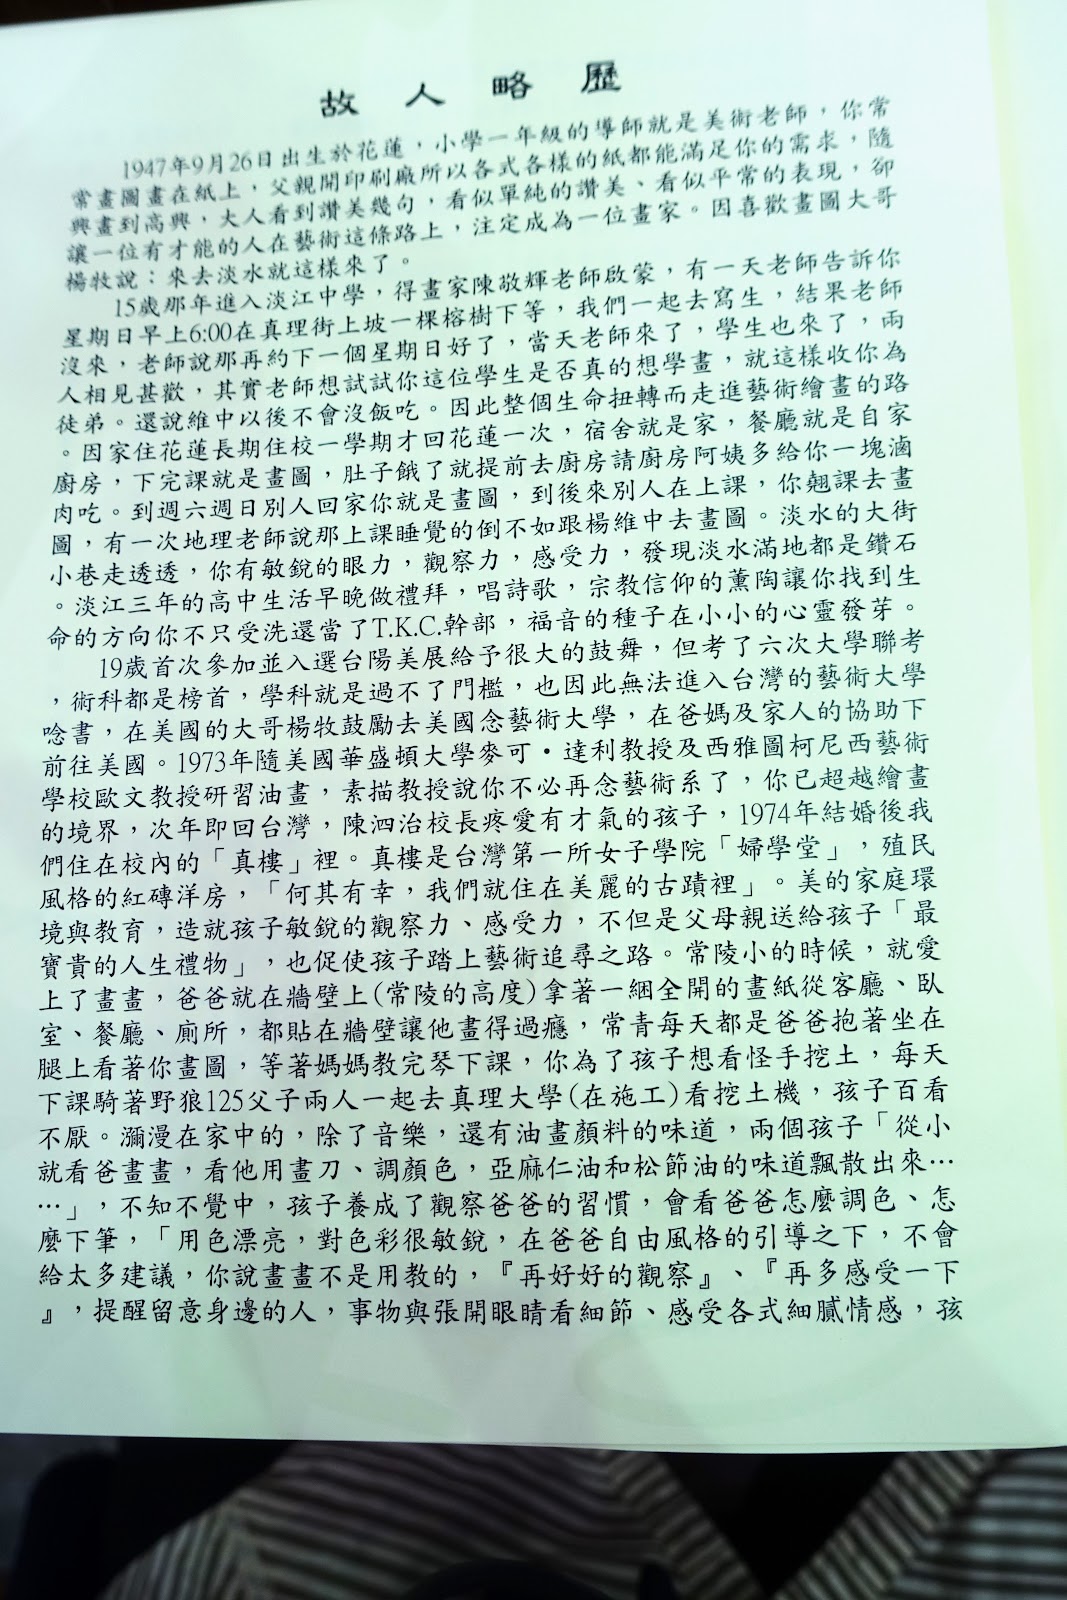 故人略歷
1947年9月26日出生於花蓮，小學一年級的導師就是美術老師，你常
常畫圖畫在紙上，父親開印刷廠所以各式各樣的紙都能滿足你的需求，隨
興畫到高興，大人看到讚美幾句，看似單純的讚美、看似平常的表現，卻
讓一位有才能的人在藝術這條路上，注定成為一位畫家。因喜歡畫圖大哥
楊牧說：來去淡水就這樣來了。
15歲那年進入淡江中學，得畫家陳敬輝老師啟蒙，有一天老師告訴你
星期日早上6:00在真理街上坡一棵榕樹下等，我們一起去寫生，結果老師
沒來，老師說那再約下一個星期日好了，當天老師來了，學生也來了，兩
人相見甚歡，其實老師想試試你這位學生是否真的想學畫，就這樣收你為
徒弟。還說維中以後不會沒飯吃。因此整個生命扭轉而走進藝術繪畫的路
。因家住花蓮長期住校一學期才回花蓮一次，宿舍就是家，餐廳就是自家
廚房，下完課就是畫圖，肚子餓了就提前去廚房請廚房阿姨多給你一塊滷
肉吃。到週六週日別人回家你就是畫圖，到後來別人在上課，你翹課去畫
圖，有一次地理老師說那上課睡覺的倒不如跟楊維中去畫圖。淡水的大街
小巷走透透，你有敏銳的眼力，觀察力，感受力，發現淡水滿地都是鑽石
。淡江三年的高中生活早晚做禮拜，唱詩歌，宗教信仰的薰陶讓你找到生
命的方向你不只受洗還當了T.K.C.幹部，福音的種子在小小的心靈發芽。
19歲首次參加並入選台陽美展給予很大的鼓舞，但考了六次大學聯考
，術科都是榜首，學科就是過不了門檻，也因此無法進入台灣的藝術大學
唸書，在美國的大哥楊牧鼓勵去美國念藝術大學，在爸媽及家人的協助下
前往美國。1973年隨美國華盛頓大學麥可•達利教授及西雅圖柯尼西藝術
學校歐文教授研習油畫，素描教授說你不必再念藝術系了，你已超越繪畫
的境界，次年即回台灣，陳泗治校長疼愛有才氣的孩子，1974年結婚後我
們住在校內的「真樓」裡。真樓是台灣第一所女子學院「婦學堂」，殖民
風格的紅磚洋房，「何其有幸，我們就住在美麗的古蹟裡」。美的家庭環
境與教育，造就孩子敏銳的觀察力、感受力，不但是父母親送給孩子「最
寶貴的人生禮物」，也促使孩子踏上藝術追尋之路。常陵小的時候，就愛
上了畫畫，爸爸就在牆壁上(常陵的高度)拿著一綑全開的畫紙從客廳、臥
室、餐廳、廁所，都貼在牆壁讓他畫得過癮，常青每天都是爸爸抱著坐在
腿上看著你畫圖，等著媽媽教完琴下課，你為了孩子想看怪手挖土，每天
下課騎著野狼125父子兩人一起去真理大學(在施工)看挖土機，孩子百看
不厭。瀰漫在家中的，除了音樂，還有油畫顏料的味道，兩個孩子「從小
就看爸畫畫，看他用畫刀、調顏色，亞麻仁油和松節油的味道飄散出來…
…」，不知不覺中，孩子養成了觀察爸爸的習慣，會看爸爸怎麼調色、怎
麼下筆，「用色漂亮，對色彩很敏銳，在爸爸自由風格的引導之下，不會
給太多建議，你說畫畫不是用教的，『再好好的觀察』、『再多感受一下
』，提醒留意身邊的人，事物與張開眼睛看細節、感受各式細膩情感，孩